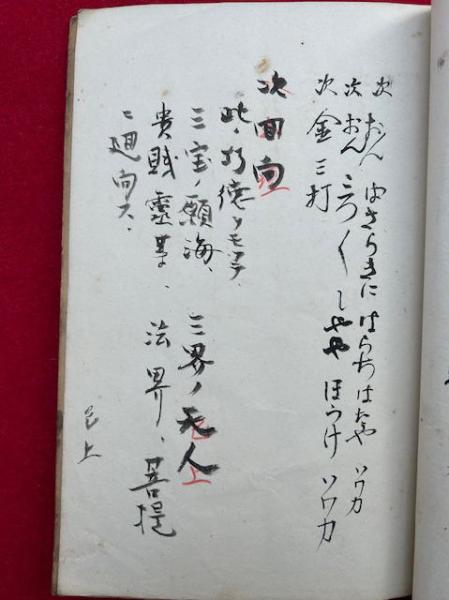 次 おん ばさらぎに はらちはたや ソワカ
次 おん さんまや ほうけ ソワカ
次 金 三打
次 回向
此ノ功徳ヲモッテ、
三宝ノ願海、三界ノ天人
貴賎霊等、法界、菩提
ニ廻向ス、
已上